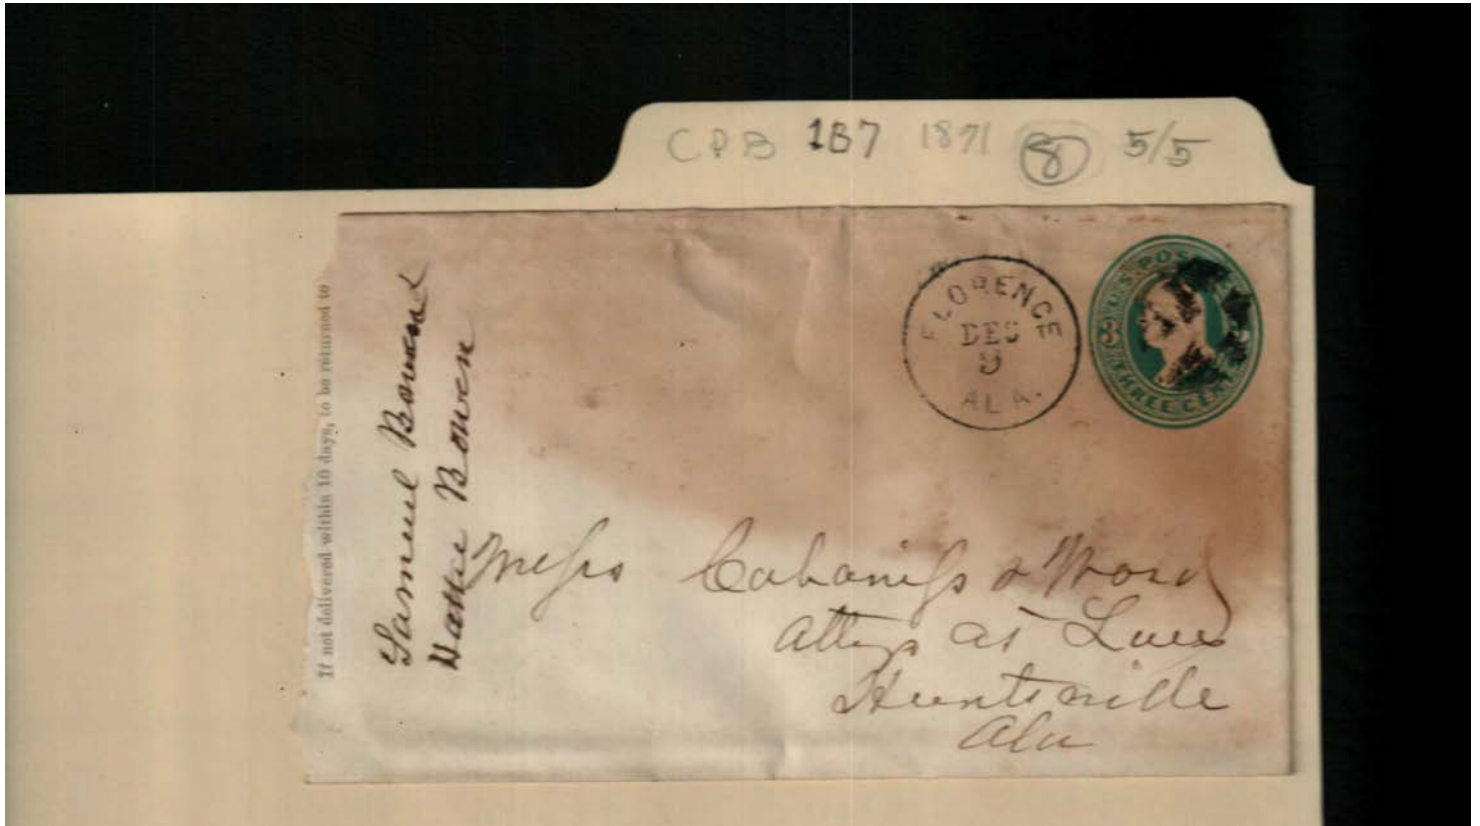 CPB 187 1871 8 5/5
If not delivered within 10 days, to be returned to
Samuel Bowen
Hattie Bowen
FLORENCE
DEC
9
ALA.
U.S. POS
3
THREE CEN
Messrs Cabaniss & Ward
Attys at Law
Huntsville
Ala